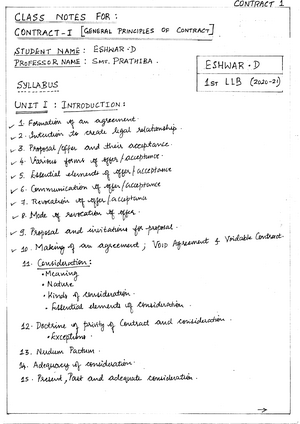 CONTRACT 1
CLASS NOTES FOR :
CONTRACT-I [GENERAL PRINCIPLES OF CONTRACT]
STUDENT NAME : ESHWAR.D
PROFESSOR NAME : SMT. PRATHIBA.
ESHWAR.D
1ST LLB (2020-21)
SYLLABUS
UNIT I : INTRODUCTION:
✓ 1. Formation of an agreement.
✓ 2. Intention to create legal relationship.
✓ 3. Proposal/offer and their acceptance.
✓ 4. Various forms of offer/acceptance.
✓ 5. Essential elements of offer/acceptance
✓ 6. Communication of offer/acceptance
✓ 7. Revocation of offer/acceptance
✓ 8. Mode of revocation of offer.
✓ 9. Proposal and invitations for proposal.
✓ 10. Making of an agreement; VOID Agreement & Voidable Contract.
11. Consideration:
• Meaning
• Nature
• Kinds of consideration.
• Essential elements of consideration.
12. Doctrine of privity of Contract and consideration.
• Exceptions.
13. Nudum Pactum.
14. Adequacy of consideration.
15. Present, Past and adequate consideration.
→